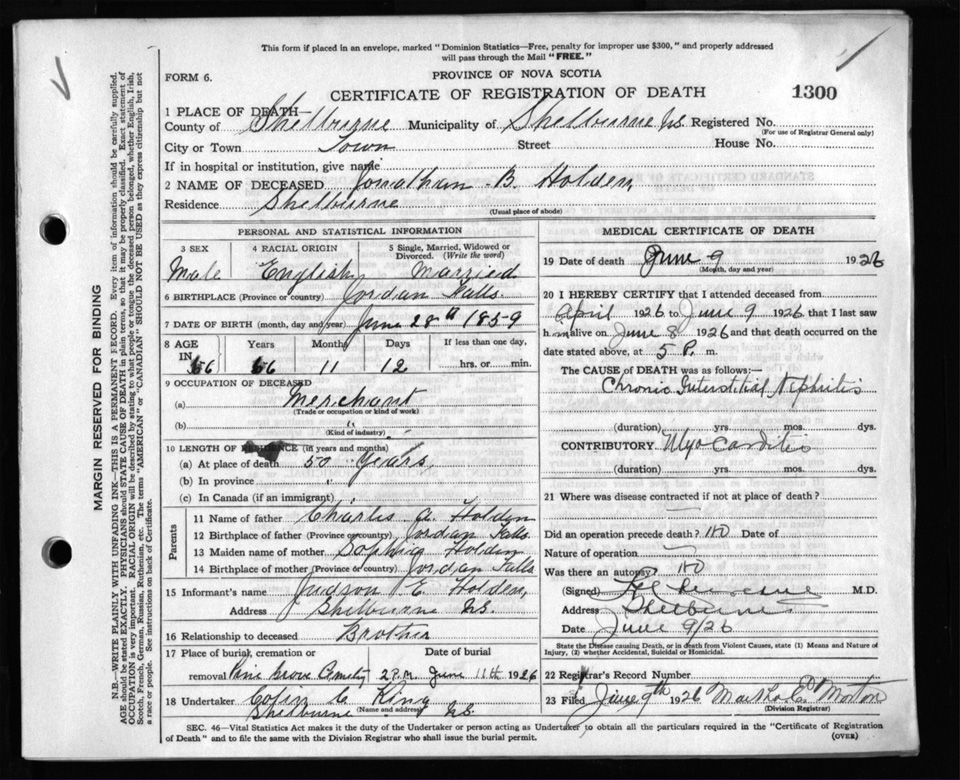 This form if placed in an envelope, marked "Dominion Statistics—Free, penalty for improper use $300," and properly addressed
will pass through the Mail "FREE."
FORM 6.
PROVINCE OF NOVA SCOTIA
CERTIFICATE OF REGISTRATION OF DEATH
1300
MARGIN RESERVED FOR BINDING
N.B.—WRITE PLAINLY WITH UNFADING INK—THIS IS A PERMANENT RECORD. Every item of information should be carefully supplied.
AGE should be stated EXACTLY. PHYSICIANS should STATE CAUSE OF DEATH in plain terms, so that it may be properly classified. Exact statement of
OCCUPATION is very important. RACIAL ORIGIN will be described by stating to what people or tongue the deceased person belonged, whether English, Irish,
Scotch, French, German, Russian, Ruthenian, etc. The terms "AMERICAN" or "CANADIAN" SHOULD NOT BE USED as they express citizenship but not
a race or people. See instructions on back of Certificate.
1 PLACE OF DEATH—
County of Shelburne Municipality of Shelburne N.S. Registered No.
(For use of Registrar General only)
City or Town Town Street House No.
If in hospital or institution, give name
2 NAME OF DECEASED Jonathan B. Holden
Residence Shelburne
(Usual place of abode)
PERSONAL AND STATISTICAL INFORMATION
3 SEX 4 RACIAL ORIGIN 5 Single, Married, Widowed or
Divorced. (Write the word)
Male English Married
6 BIRTHPLACE (Province or country) Jordan Falls
7 DATE OF BIRTH (month, day and year) June 28th 1859
8 AGE Years Months Days If less than one day,
IN 66 66 11 12 hrs. or min.
9 OCCUPATION OF DECEASED
(a) Merchant
(Trade or occupation or kind of work)
(b) "
(Kind of industry)
10 LENGTH OF RESIDENCE (in years and months)
(a) At place of death 50 Years
(b) In province "
(c) In Canada (if an immigrant)
Parents
11 Name of father Charles A. Holden
12 Birthplace of father (Province or country) Jordan Falls
13 Maiden name of mother Sophia Holden
14 Birthplace of mother (Province or country) Jordan Falls
15 Informant's name Judson E. Holden
Address Shelburne N.S.
16 Relationship to deceased Brother
17 Place of burial, cremation or Date of burial
removal Pine Grove Cemetry 2 P.M. June 11th 1926
18 Undertaker Colin C. King
Shelburne (Name and address) N.S.
MEDICAL CERTIFICATE OF DEATH
19 Date of death June 9 1926
(Month, day and year)
20 I HEREBY CERTIFY that I attended deceased from
April 1926 to June 9 1926 that I last saw
him alive on June 8 1926 and that death occurred on
date stated above, at 5 P. m.
The CAUSE OF DEATH was as follows:—
Chronic Interstitial Nephritis
(duration) yrs. mos. dys.
CONTRIBUTORY. Myocarditis
(duration) yrs. mos. dys.
21 Where was disease contracted if not at place of death?
Did an operation precede death? no Date of
Nature of operation
Was there an autopsy? no
(Signed) M.D.
Address Shelburne
Date June 9/26
State the Disease causing Death, or in death from Violent Causes, state (1) Means and Nature of
Injury, (2) whether Accidental, Suicidal or Homicidal.
22 Registrar's Record Number
23 Filed June 9th 1926 Morton
(Division Registrar)
SEC. 46—Vital Statistics Act makes it the duty of the Undertaker or person acting as Undertaker to obtain all the particulars required in the "Certificate of Registration
of Death" and to file the same with the Division Registrar who shall issue the burial permit.
(OVER)